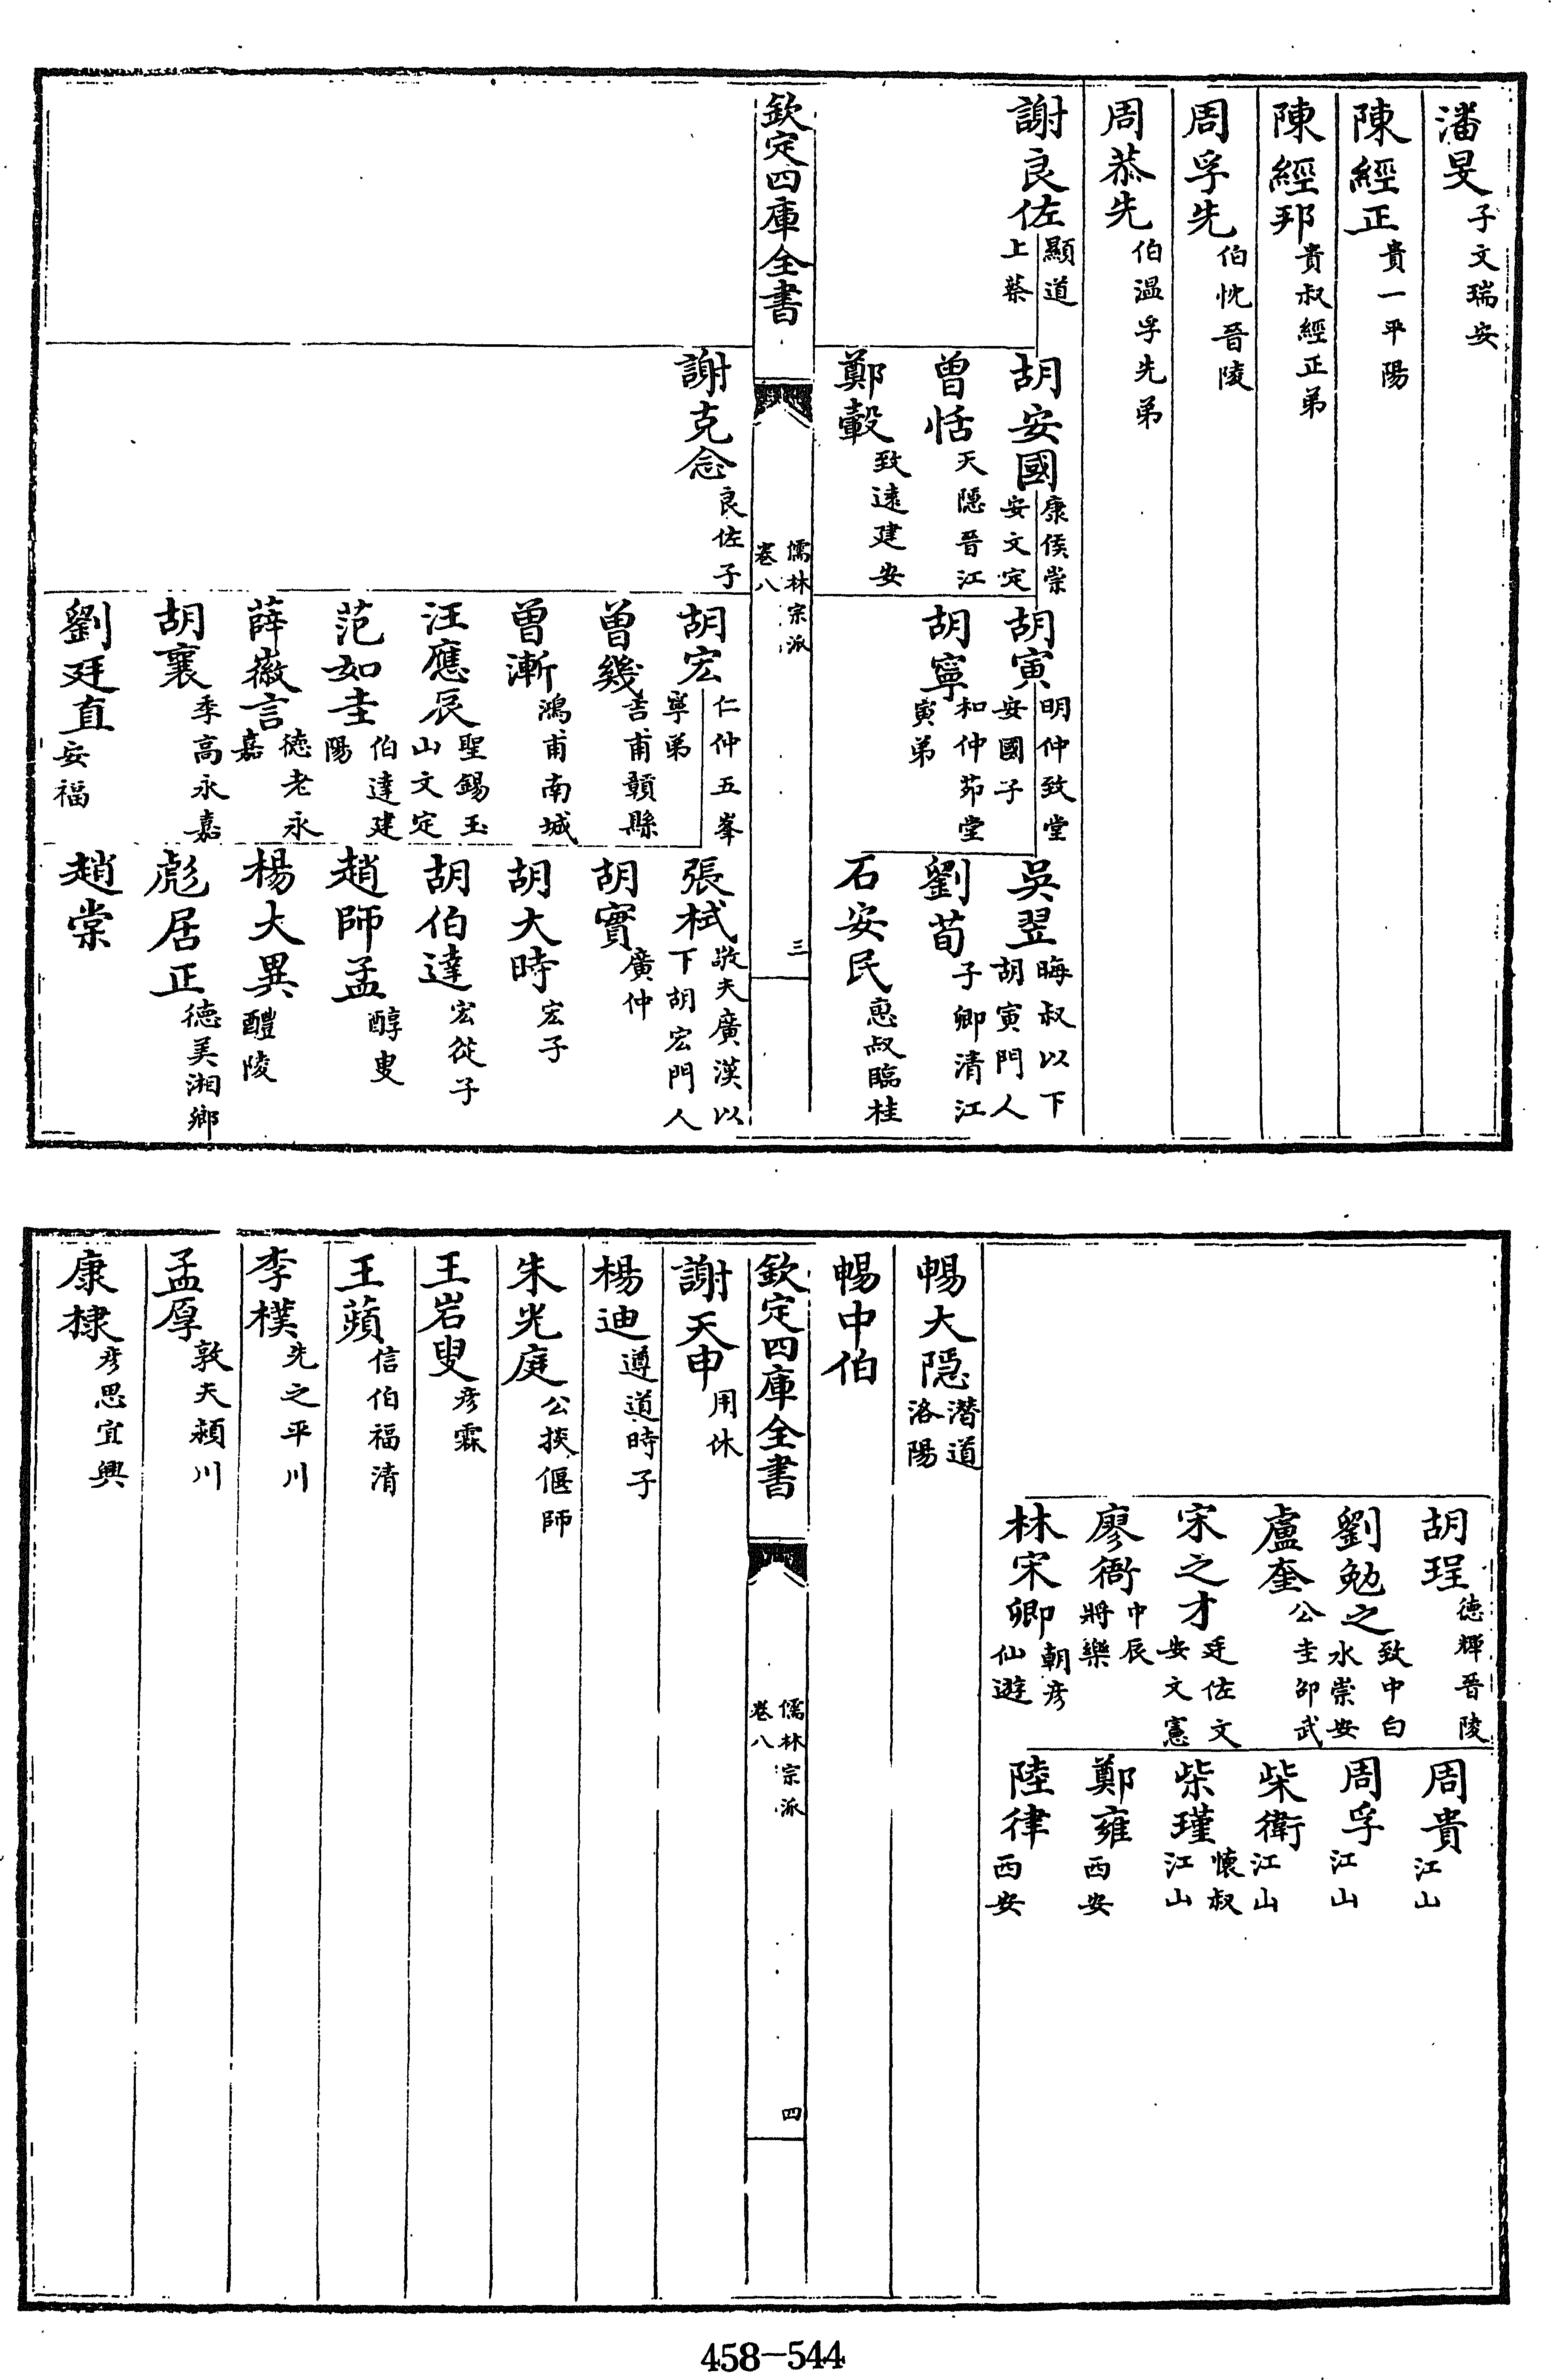 潘旻子文瑞安
陳經正貴一平陽
陳經邦貴叔經正弟
周孚先伯忱晉陵
周恭先伯溫孚先弟
謝良佐顯道上蔡
胡安國康侯崇安文定
胡寅明仲致堂安國子
吳翌晦叔以下胡寅門人
曾恬天隱晉江
胡寧和仲茆堂寅弟
劉荀子卿清江
鄭轂致遠建安
石安民惠叔臨桂
欽定四庫全書
儒林宗派
卷八
三
謝克念良佐子
胡宏仁仲五峯寧弟
張栻敬夫廣漢以下胡宏門人
曾幾吉甫贛縣
胡實廣仲
曾漸鴻甫南城
胡大時宏子
汪應辰聖錫玉山文定
胡伯達宏從子
范如圭伯達建陽
趙師孟醇叟
薛徽言德老永嘉
楊大異醴陵
胡襄季高永嘉
彪居正德美湘鄉
劉廷直安福
趙棠
胡珵德輝晉陵
周貴江山
劉勉之致中白水崇安
周孚江山
盧奎公圭邵武
柴衛江山
宋之才廷佐文安文憲
柴瑾懷叔江山
廖衙中辰將樂
鄭雍西安
林宋卿朝彥仙遊
陸律西安
暢大隱潛道洛陽
暢中伯
欽定四庫全書
儒林宗派
卷八
四
謝天申用休
楊迪遵道時子
朱光庭公掞偃師
王岩叟彥霖
王蘋信伯福清
李樸先之平川
孟厚敦夫潁川
康棣彥思宜興
458-544